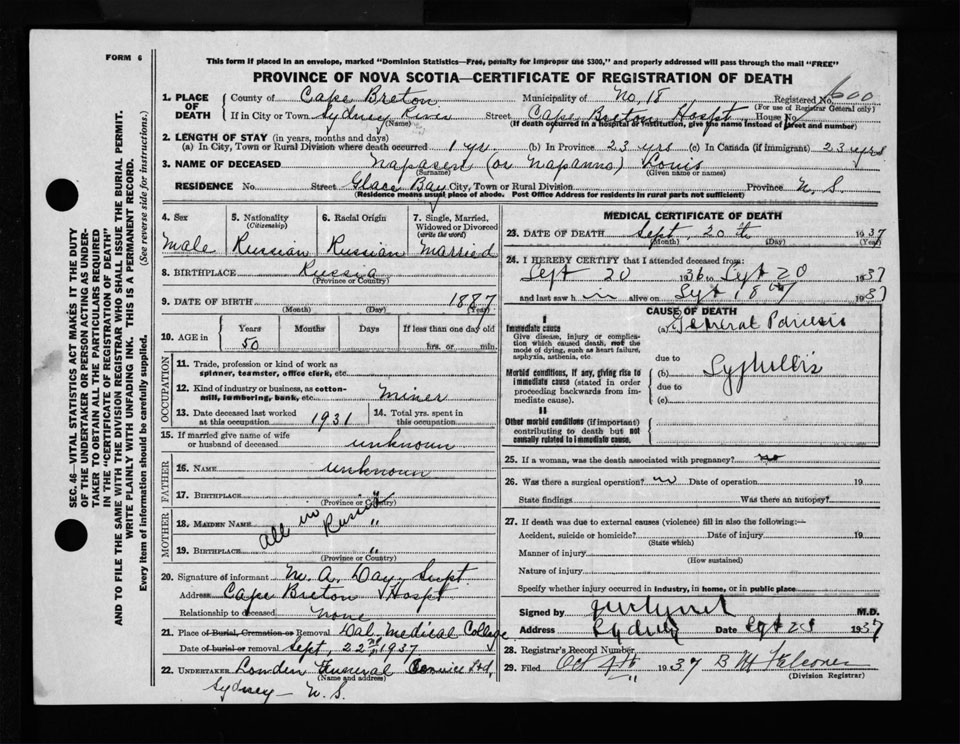 FORM 6
This form if placed in an envelope, marked "Dominion Statistics—Free, penalty for improper use $300," and properly addressed will pass through the mail "FREE"
PROVINCE OF NOVA SCOTIA—CERTIFICATE OF REGISTRATION OF DEATH
SEC. 46—VITAL STATISTICS ACT MAKES IT THE DUTY
OF THE UNDERTAKER OR PERSON ACTING AS UNDER-
TAKER TO OBTAIN ALL THE PARTICULARS REQUIRED
IN THE "CERTIFICATE OF REGISTRATION OF DEATH"
AND TO FILE THE SAME WITH THE DIVISION REGISTRAR WHO SHALL ISSUE THE BURIAL PERMIT.
WRITE PLAINLY WITH UNFADING INK. THIS IS A PERMANENT RECORD.
Every item of information should be carefully supplied. (See reverse side for instructions.)
1. PLACE OF DEATH County of Cape Breton Municipality of No. 18 Registered No. 600
(For use of Registrar General only)
If in City or Town Sydney River Street Cape Breton Hospt House No
(Name) (If death occurred in a hospital or institution, give the name instead of street and number)
2. LENGTH OF STAY (in years, months and days)
(a) In City, Town or Rural Division where death occurred 1 yr. (b) In Province 23 yrs (c) In Canada (if immigrant) 23 yrs
3. NAME OF DECEASED Napasen (or Napanno) Louis
(Surname) (Given name or names)
RESIDENCE No. Street Glace Bay City, Town or Rural Division Province N. S.
(Residence means usual place of abode. Post Office Address for residents in rural parts not sufficient)
4. Sex 5. Nationality 6. Racial Origin 7. Single, Married,
(Citizenship) Widowed or Divorced
(write the word)
Male Russian Russian Married
8. BIRTHPLACE Russia
(Province or Country)
9. DATE OF BIRTH 1887
(Month) (Day) (Year)
10. AGE in Years Months Days If less than one day old
50 hrs. or min.
OCCUPATION
11. Trade, profession or kind of work as
spinner, teamster, office clerk, etc.
12. Kind of industry or business, as cotton-
mill, lumbering, bank, etc. Miner
13. Date deceased last worked 14. Total yrs. spent in
at this occupation 1931 this occupation
15. If married give name of wife
or husband of deceased unknown
FATHER
16. NAME unknown
17. BIRTHPLACE
(Province or Country)
MOTHER
18. MAIDEN NAME "
all in Russia
19. BIRTHPLACE "
(Province or Country)
20. Signature of informant M. A. Day, Supt
Address Cape Breton Hospt
Relationship to deceased none
21. Place of Burial, Cremation or Removal Dal Medical College
Date of burial or removal Sept, 22nd 1937
22. UNDERTAKER Lowden Funeral Service Ltd,
(Name and address)
Sydney— N. S.
MEDICAL CERTIFICATE OF DEATH
23. DATE OF DEATH Sept, 20th 1937
(Month) (Day) (Year)
24. I HEREBY CERTIFY that I attended deceased from
Sept 20 1936 to Sept 20 1937
and last saw him alive on Sept 18th 1937
CAUSE OF DEATH
I
Immediate cause (a) General Pariesis
Give disease, injury or complica-
tion which caused death, not the
mode of dying, such as heart failure,
asphyxia, asthenia, etc.
due to
Morbid conditions, if any, giving rise to (b) Syphillis
immediate cause (stated in order
proceeding backwards from im-
mediate cause).
due to
(c)
II
Other morbid conditions (if important)
contributing to death but not
causally related to immediate cause.
25. If a woman, was the death associated with pregnancy? no
26. Was there a surgical operation? no Date of operation 19
State findings Was there an autopsy?
27. If death was due to external causes (violence) fill in also the following:—
Accident, suicide or homicide? Date of injury 19
(State which)
Manner of injury
(How sustained)
Nature of injury
Specify whether injury occurred in industry, in home, or in public place
Signed by M.D.
Address Sydney Date Sept 23 1937
28. Registrar's Record Number
29. Filed Oct 4th 1937 B M Falconer
(Division Registrar)